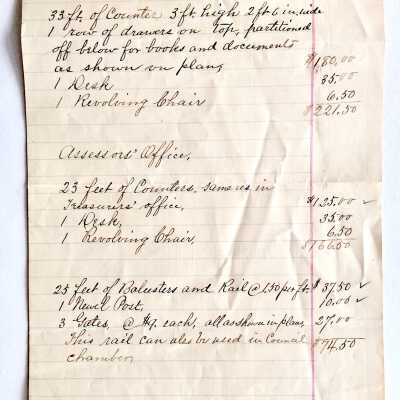 33 ft. of Counter 3 ft. high 2 ft 6 in. wide
1 row of drawers on top, partitioned
off below for books and documents
as shown on plan, $180.00
1 Desk 35.00
1 Revolving Chair 6.50
$221.50
Assessors' Office,
23 feet of Counters, same as in
Treasurers' office, $125.00 ✓
1 Desk, 35.00
1 Revolving Chair, 6.50
$166.50
25 feet of Balusters and Rail @ 1.50 per ft. $37.50 ✓
1 Newel Post, 10.00 ✓
3 Gates, @ $9. each, all as shown in plans, 27.00
This rail can also be used in Council $74.50
chamber,